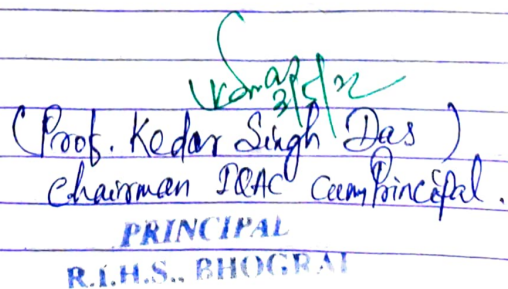 3/5/22
(Prof. Kedar Singh Das)
Chairman IQAC Cum Principal.
PRINCIPAL
R.I.H.S., BHOGRAI